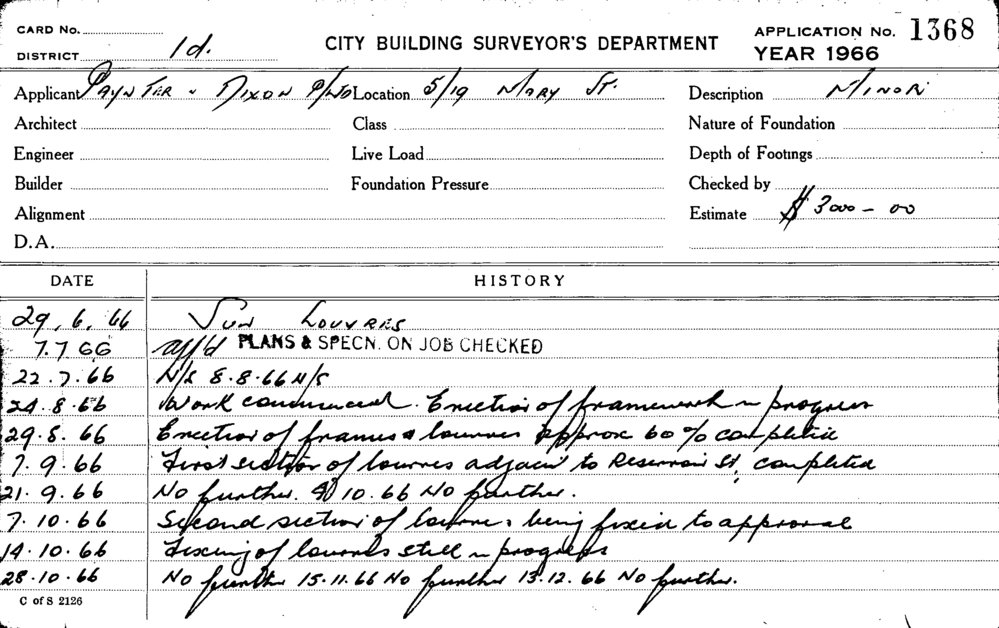 CARD No.
DISTRICT 1d.
CITY BUILDING SURVEYOR'S DEPARTMENT
APPLICATION No. 1368
YEAR 1966
Applicant Paynter & Dixon P/L Location 5/19 Mary St. Description Minor
Architect Class Nature of Foundation
Engineer Live Load Depth of Footings
Builder Foundation Pressure Checked by
Alignment Estimate $ 3000-00
D.A.
DATE HISTORY
29.6.66 Sun Louvres
7.7 66 app'd PLANS & SPECN. ON JOB CHECKED
22.7.66 N/S 8.8.66 N/S
24.8.66 Work commenced. Erection of framework in progress
29.8.66 Erection of frames & louvres approx 60% completed
7.9.66 First section of louvres adjacent to Reservoir St, completed
21.9.66 No further. 10.66 No further.
7.10.66 Second section of louvres being fixed to approval
14.10.66 Fixing of louvres still in progress
28.10.66 No further 15.11.66 No further 13.12.66 No further.
C of S 2126